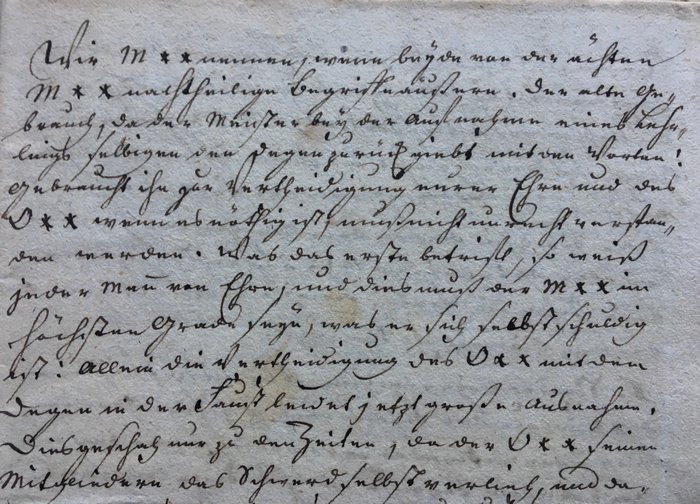 Wir M ** nennen, wenn beyde von der ächten
M ** nachtheilige Begriffe äußern. Der alte Ge-
brauch, da der Meister bey der Aufnahme eines Lehr-
lings selbigen den Degen zurück giebt mit den Worten:
Gebraucht ihn zur Vertheidigung eurer Ehre und des
O ** wenn es nöthig ist, muß nicht unrecht verstan-
den werden. Was das erste betrift, so weiß
jeder Mann von Ehre, und dies muß der M ** im
höchsten Grade seyn, was er sich selbst schuldig
ist: Allein die Vertheidigung des O ** mit dem
Degen in der Faust leidet jetzt große Ausnahm.
Dies geschah nur zu den Zeiten, da der O ** seinen
Mitgliedern das Schwerd selbst verlieh, und da-